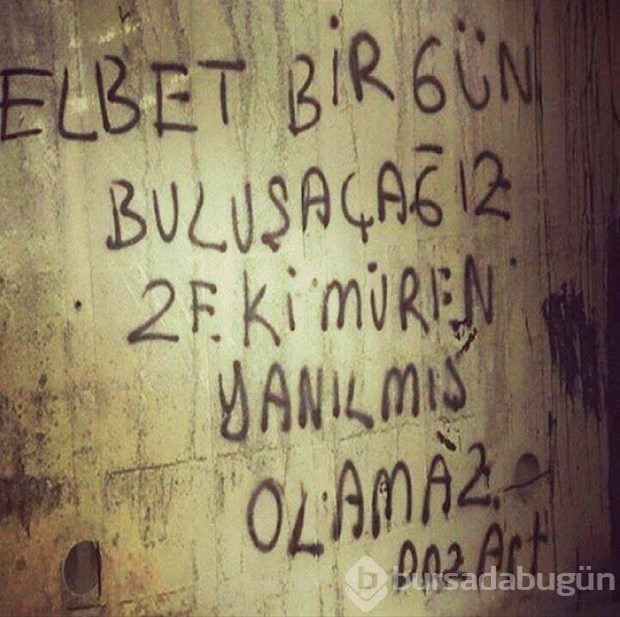 ELBET BİR GÜN
BULUŞAÇAĞIZ
ZEKİ MÜREN
YANILMIŞ
OLAMAZ.
bursadabugün